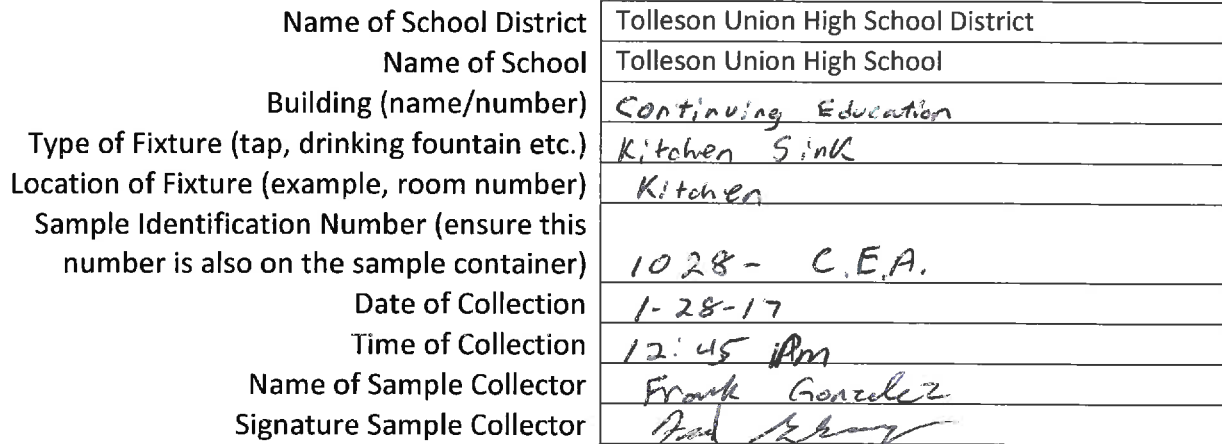 Name of School District Tolleson Union High School District
Name of School Tolleson Union High School
Building (name/number) Continuing Education
Type of Fixture (tap, drinking fountain etc.) Kitchen Sink
Location of Fixture (example, room number) Kitchen
Sample Identification Number (ensure this
number is also on the sample container) 1028- C.E.A.
Date of Collection 1-28-17
Time of Collection 12:45 Pm
Name of Sample Collector Frank Gonzalez
Signature Sample Collector